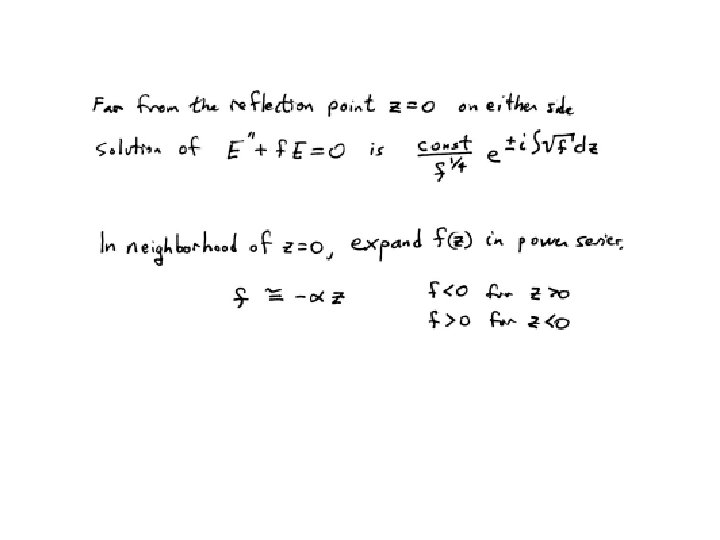 Far from the reflection point z=0 on either side
solution of E″ + fE = 0 is const/f^{1/4} e^{±i∫√f dz}
In neighborhood of z=0, expand f(z) in power series.
f ≅ -αz f<0 for z>0
f>0 for z<0